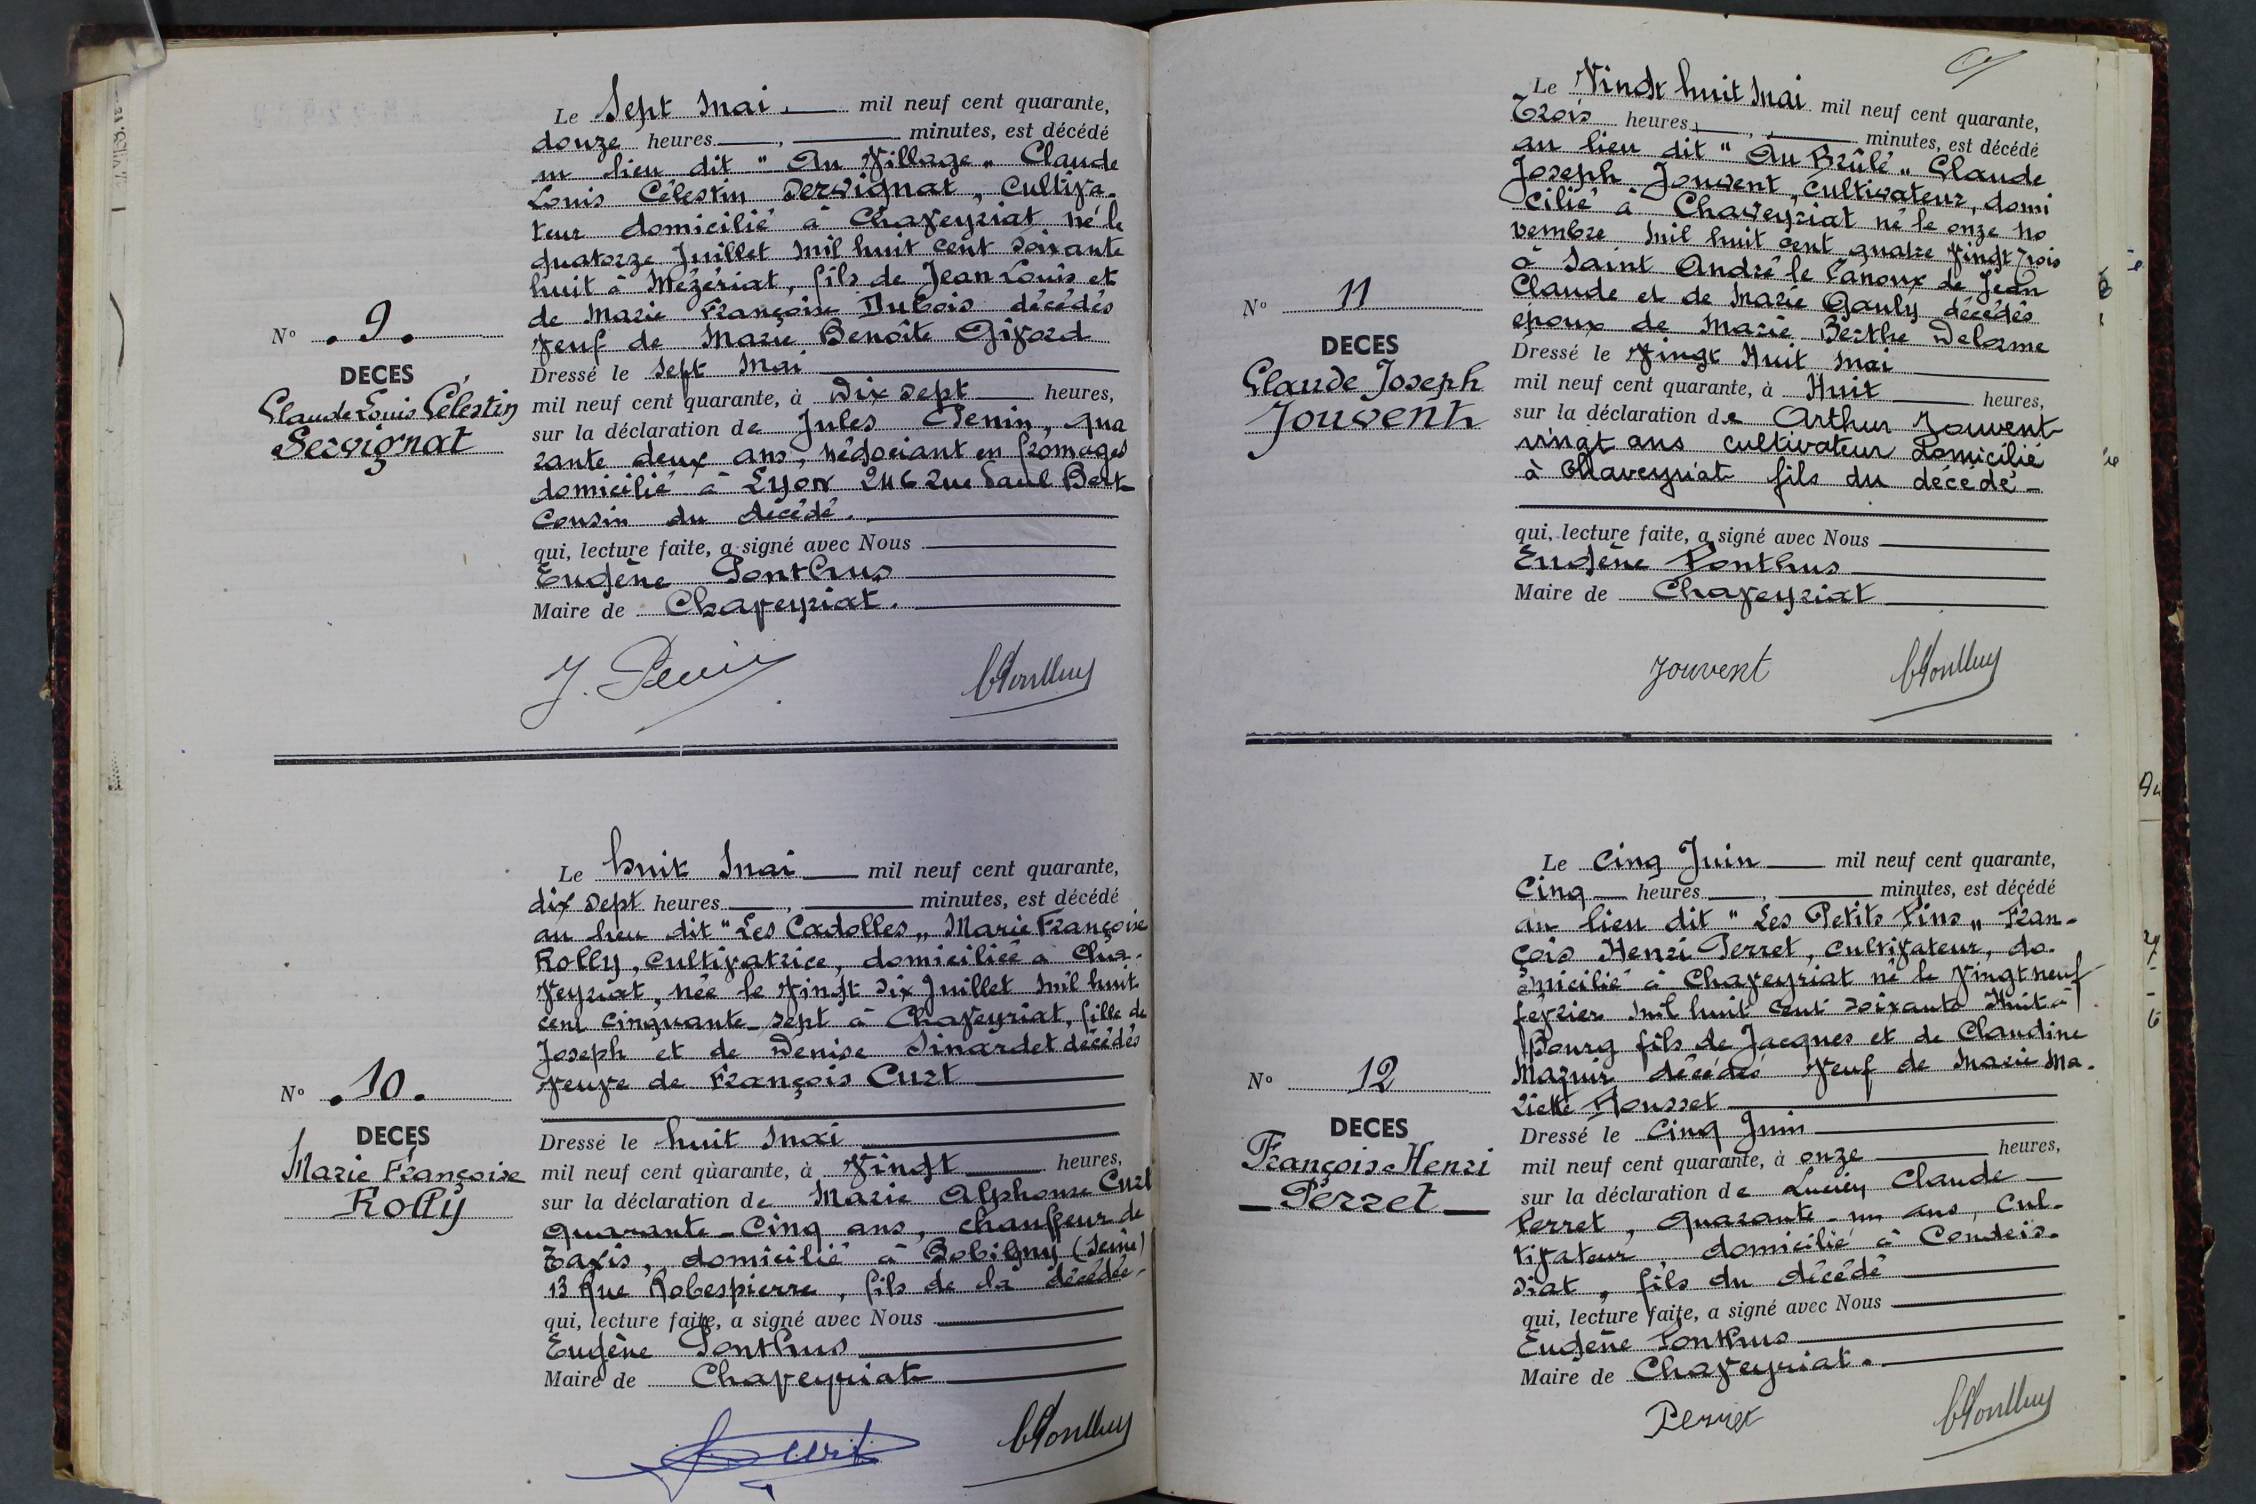 Le Sept Mai mil neuf cent quarante,
douze heures, minutes, est décédé
au lieu dit "Au Village" Claude
Louis Célestin Servignat, cultiva-
teur domicilié à Chaveyriat né le
quatorze Juillet mil huit cent soixante
huit à Mézériat, fils de Jean Louis et
de Marie Françoise Dubois décédés
Veuf de Marie Benoîte Givord
Nº .9.
DECES
Claude Louis Célestin
Servignat
Dressé le sept Mai
mil neuf cent quarante, à Dix sept heures,
sur la déclaration de Jules Penin, qua
rante deux ans, négociant en fromages
domicilié à Lyon 246 Rue Paul Bert
Cousin du décédé.
qui, lecture faite, a signé avec Nous
Eugène Ponthus
Maire de Chaveyriat.
J. Penin
Le huit Mai mil neuf cent quarante,
dix sept heures, minutes, est décédé
au lieu dit "Les Cadolles" Marie Françoise
Rolly, cultivatrice, domiciliée à Cha-
veyriat, née le Vingt Six Juillet mil huit
cent cinquante sept à Chaveyriat, fille de
Joseph et de Denise Sinardet décédés
Veuve de François Curt
Nº .10.
DECES
Marie Françoise
Rolly
Dressé le huit Mai
mil neuf cent quarante, à Vingt heures,
sur la déclaration de Marie Alphonse Curt
quarante-Cinq ans, chauffeur de
Taxis, domicilié à Bobigny (Seine)
13 Rue Robespierre, fils de la décédée-
qui, lecture faite, a signé avec Nous
Eugène Ponthus
Maire de Chaveyriat
Curt
Le Vingt huit Mai mil neuf cent quarante,
Trois heures, minutes, est décédé
au lieu dit "Au Brûlé" Claude
Joseph Jouvent, cultivateur, domi
cilié à Chaveyriat né le onze no
vembre mil huit cent quatre Vingt Trois
à Saint André le Panoux de Jean
Claude et de Marie Gauly décédés
époux de Marie Berthe Delorme
Nº 11
DECES
Claude Joseph
Jouvent
Dressé le Vingt Huit Mai
mil neuf cent quarante, à Huit heures,
sur la déclaration de Arthur Jouvent
vingt ans cultivateur domicilié
à Chaveyriat fils du décédé-
qui, lecture faite, a signé avec Nous
Eugène Ponthus
Maire de Chaveyriat
Jouvent
Le Cinq Juin mil neuf cent quarante,
Cinq heures, minutes, est décédé
au lieu dit "Les Petits Pins" Fran-
çois Henri Perret, cultivateur, do-
micilié à Chaveyriat né le Vingt neuf
février mil huit cent soixante Huit à
Bourg fils de Jacques et de Claudine
Mazuir décédés Veuf de Marie Ma-
riette Rousset
Nº 12
DECES
François-Henri
Perret
Dressé le Cinq Juin
mil neuf cent quarante, à onze heures,
sur la déclaration de Lucien Claude
Perret, Quarante-un ans, cul-
tivateur domicilié à Condeis-
siat, fils du décédé
qui, lecture faite, a signé avec Nous
Eugène Ponthus
Maire de Chaveyriat.
Perret